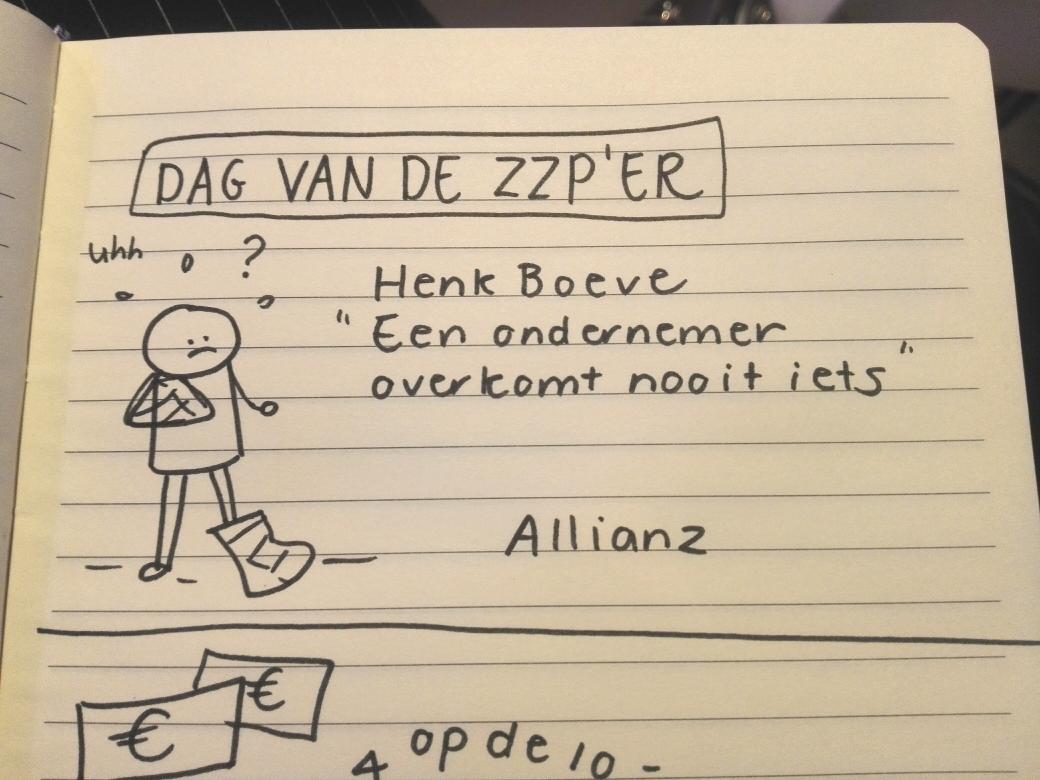 DAG VAN DE ZZP'ER
uhh ?
Henk Boeve
"Een ondernemer
overkomt nooit iets"
Allianz
€ €
4 op de 10 -